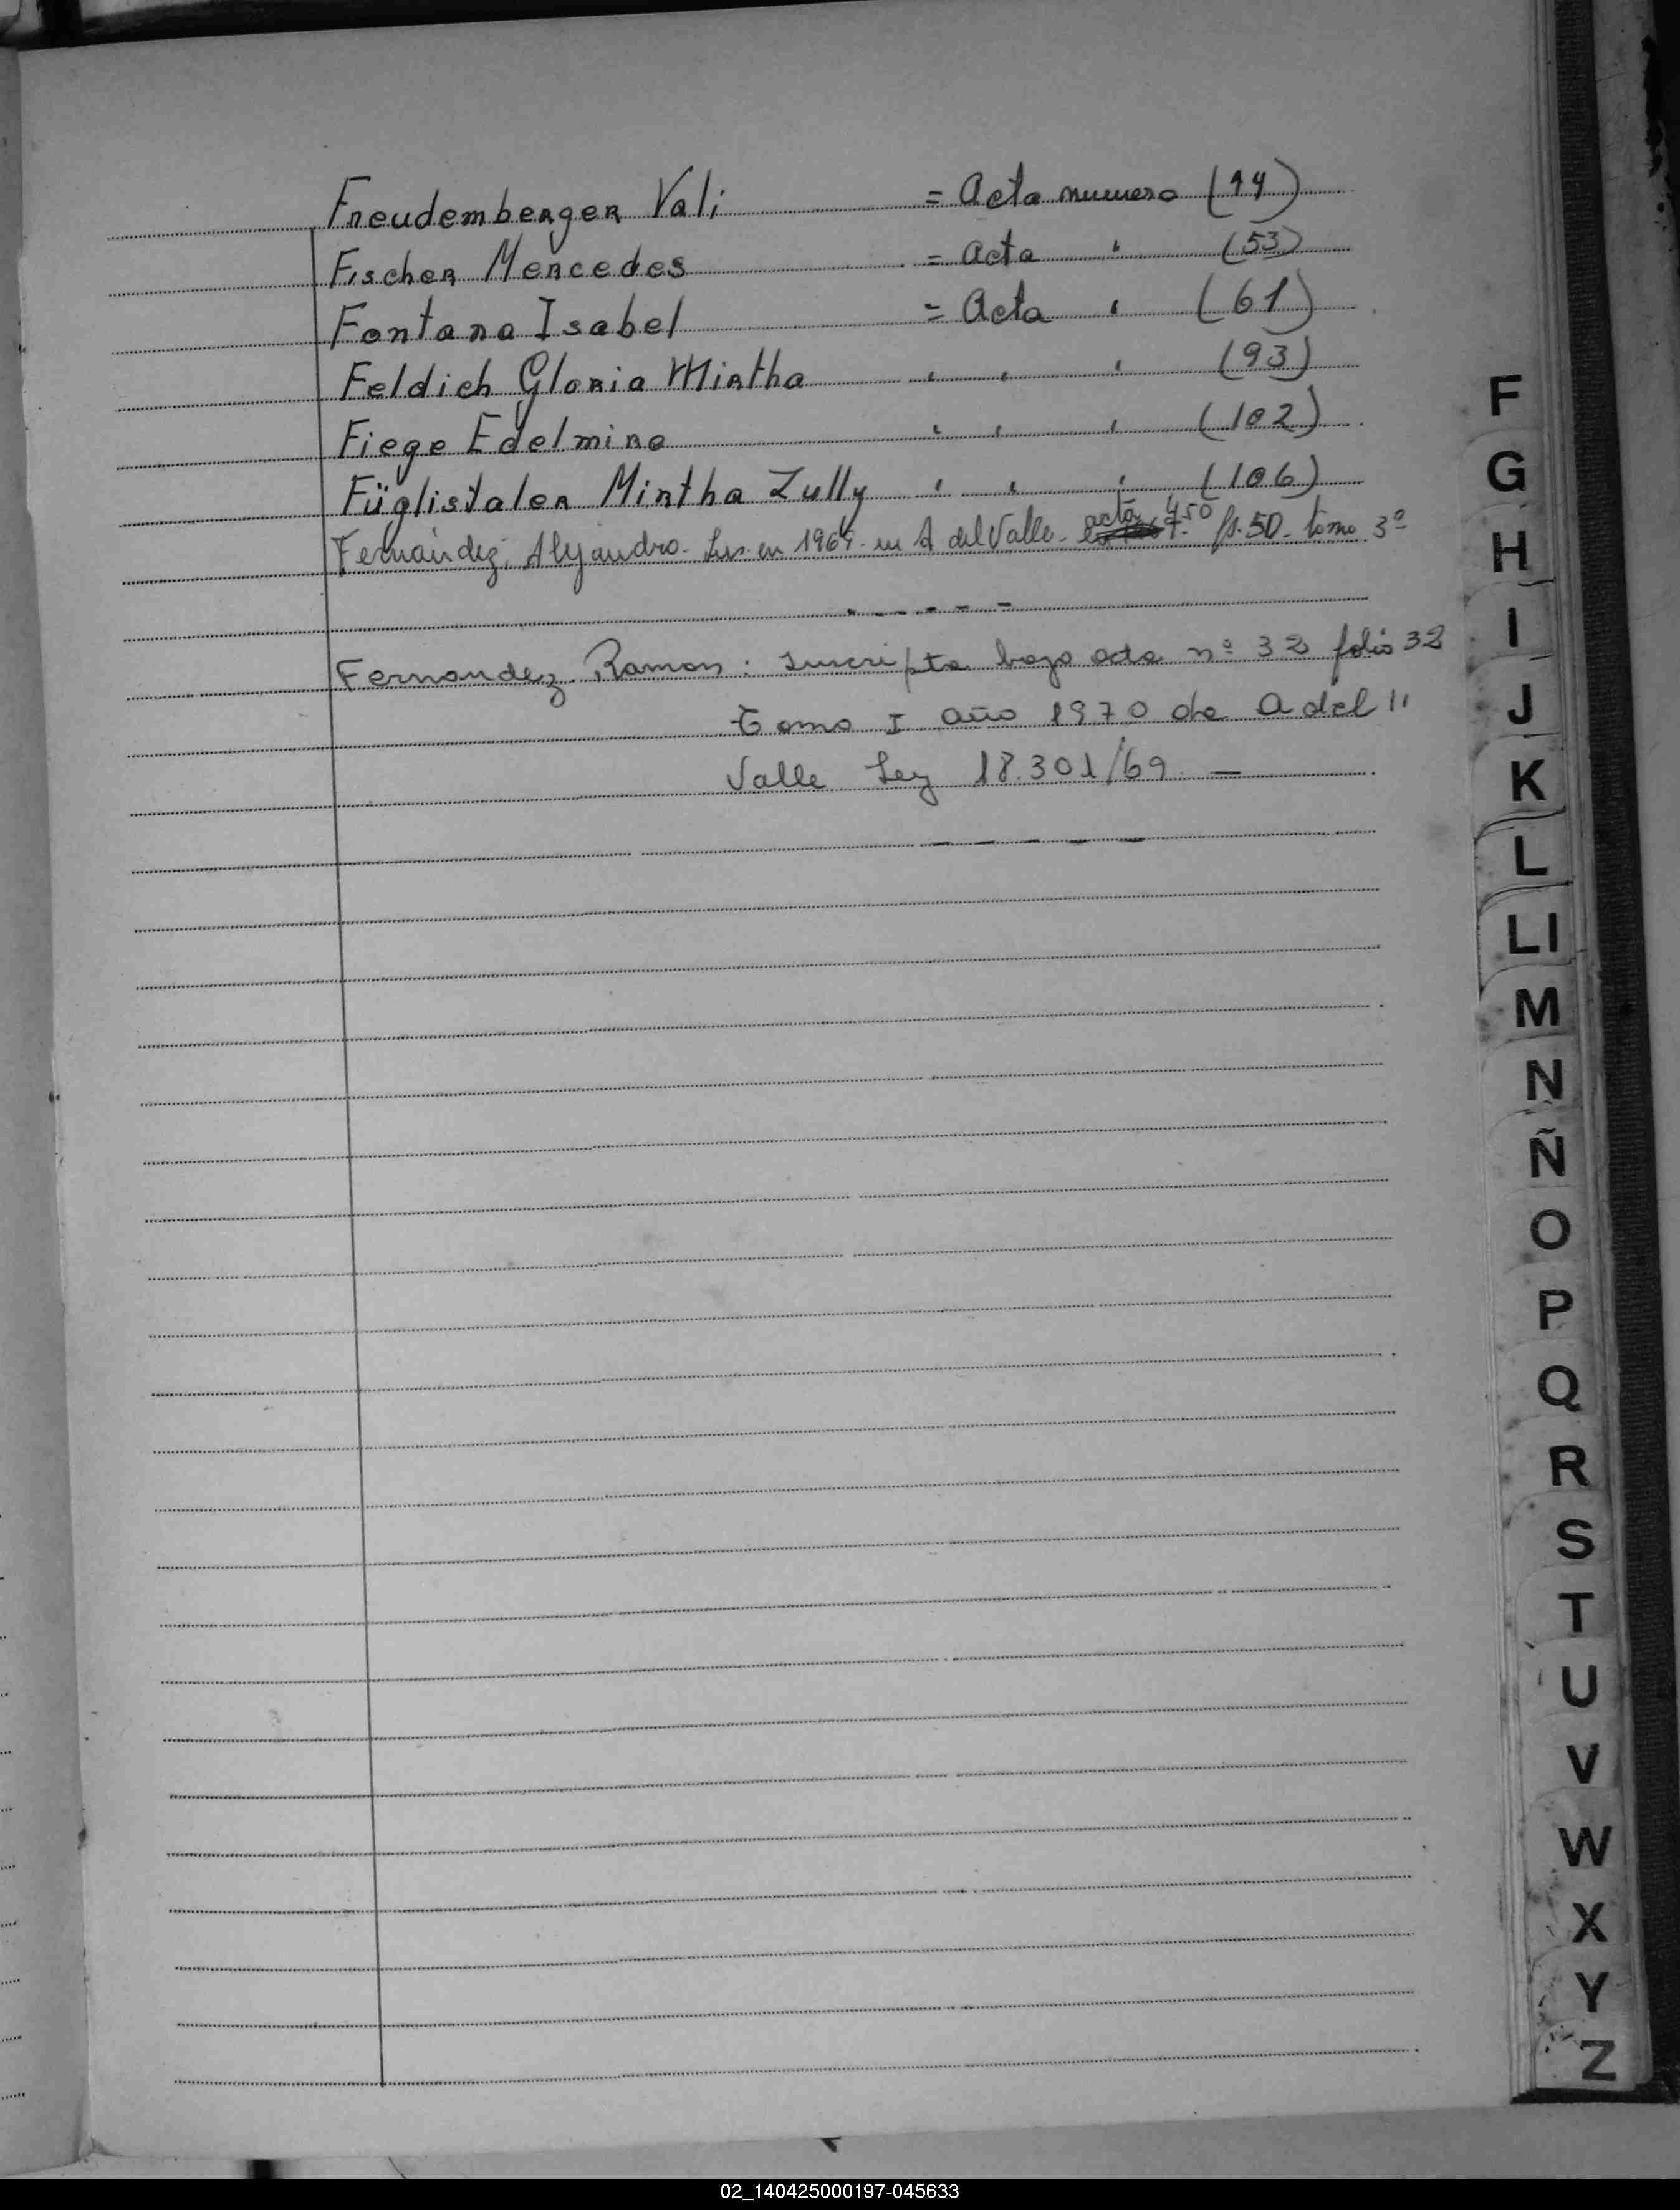 Freudemberger Vali = Acta numero (14)
Fischer Mercedes = Acta " (53)
Fontana Isabel = Acta " (61)
Feldich Gloria Mirtha " " " (93)
Fiege Edelmira " " " (102)
Füglistaler Mirtha Zully " " " (106)
Fernández, Alejandro. Ins. en 1964 en A del Valle - acta 450 fs. 50 - tomo 3º
Fernandez Ramon: Inscripta bajo acta nº 32 folio 32
Tomo I año 1970 de A del "
Valle Ley 18.301/69 —
F
G
H
I
J
K
L
Ll
M
N
Ñ
O
P
Q
R
S
T
U
V
W
X
Y
Z
02_140425000197-045633